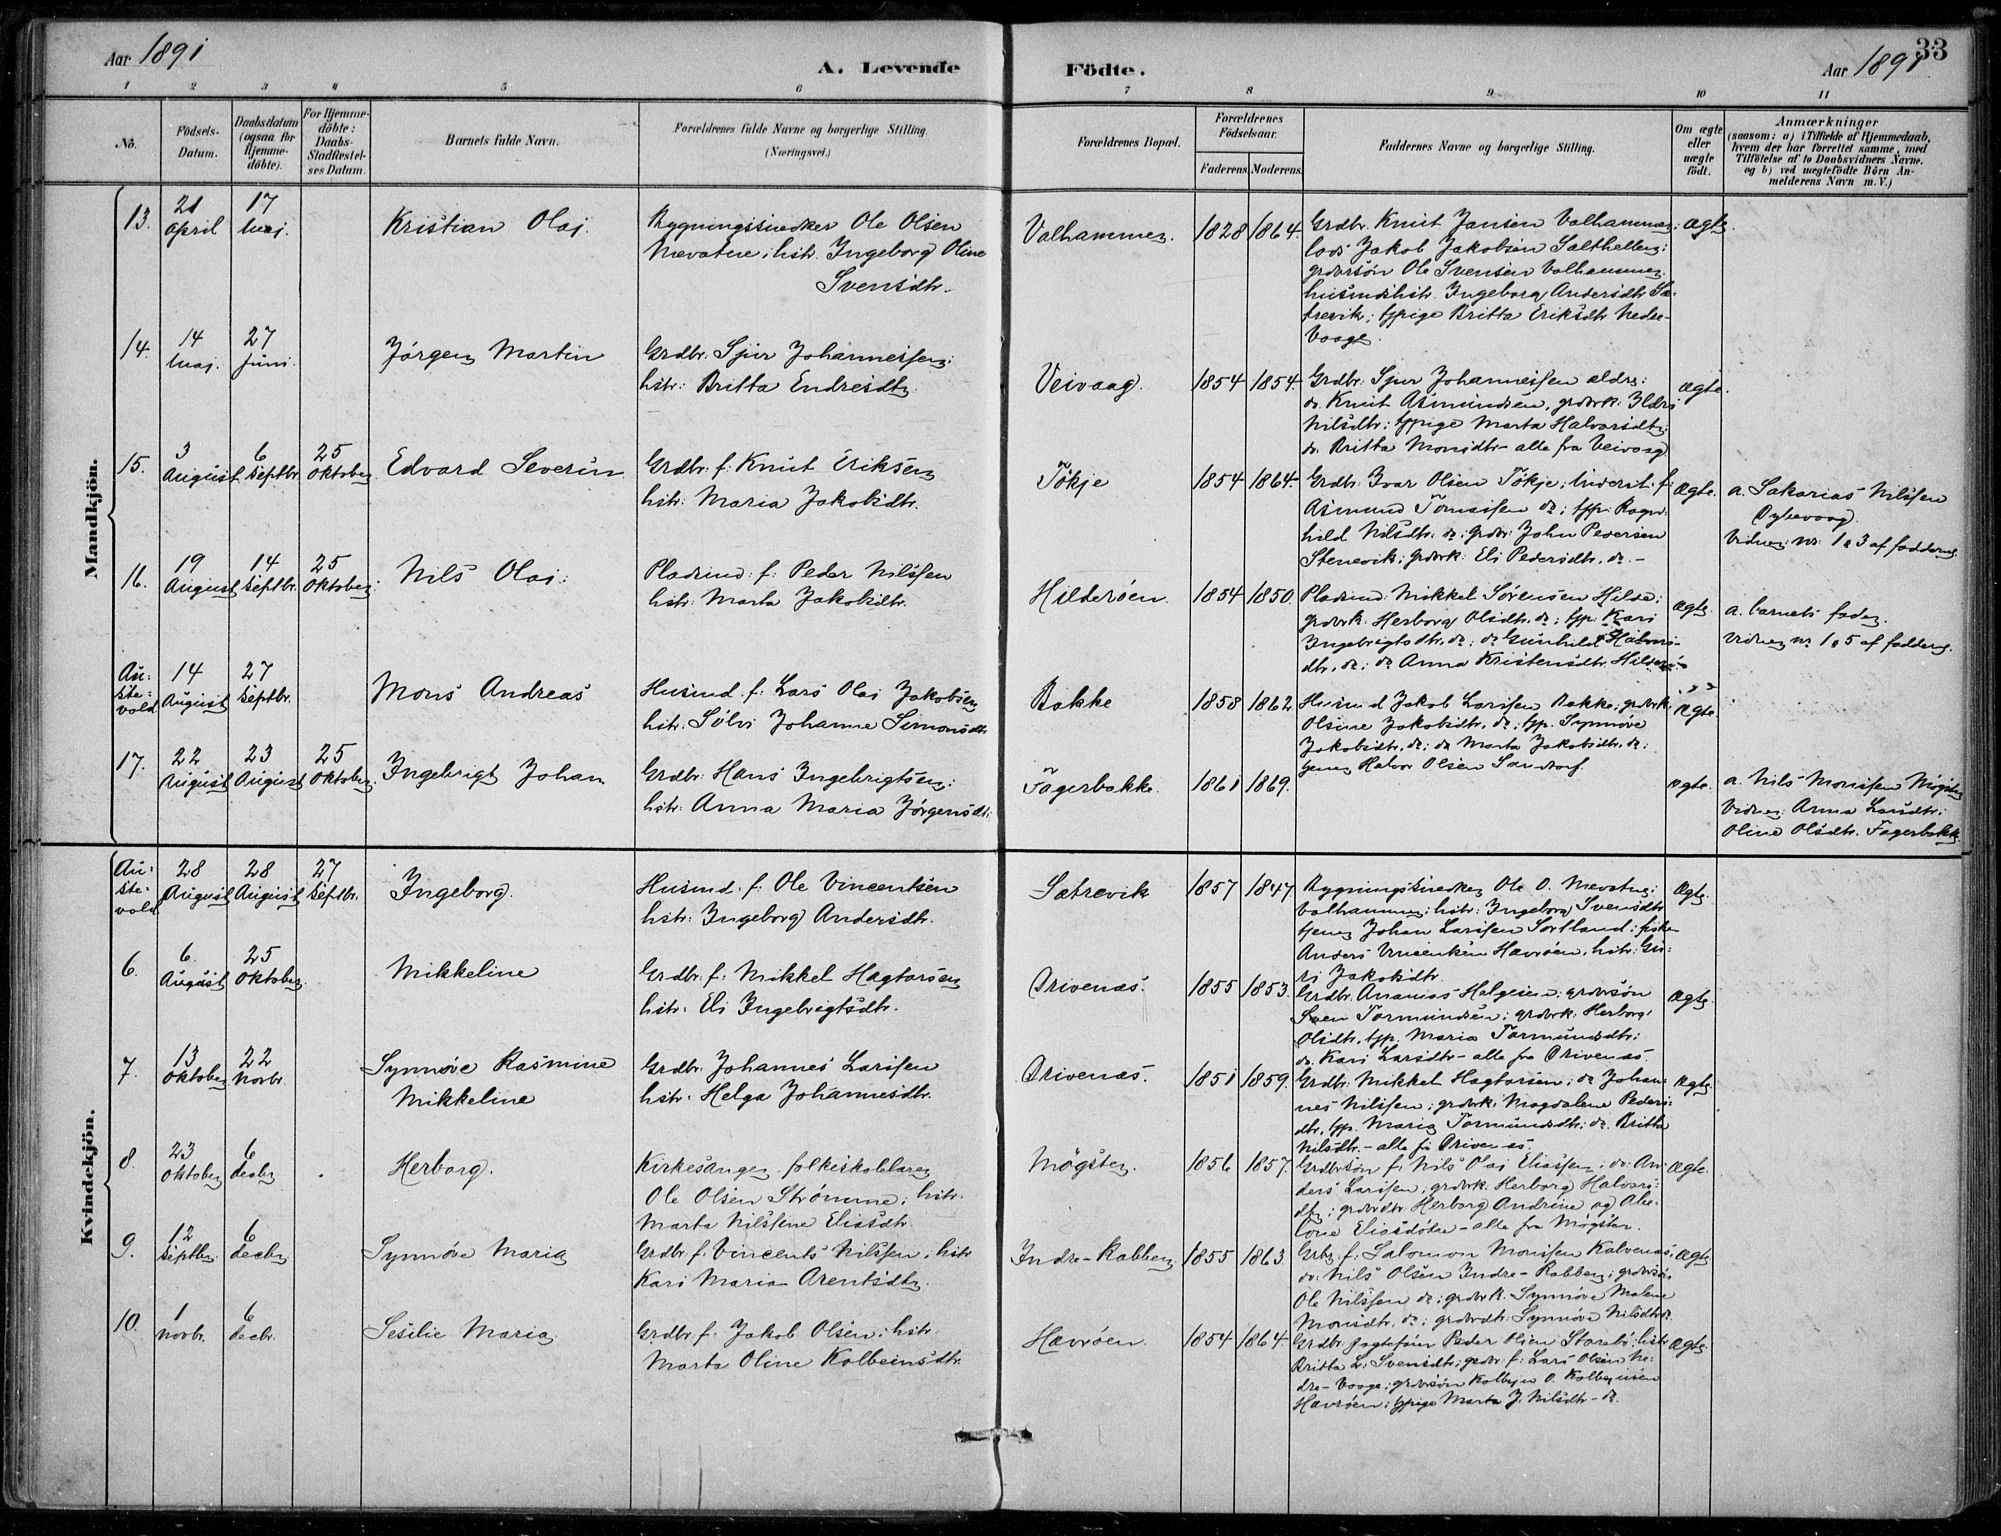 Aar 1891
A. Levende Födte.
Aar 1891
33
1 2 3 4 5 6 7 8 9 10 11
No.
Födsels-Datum.
Daabsdatum (ogsaa for Hjemme-döbte).
For Hjemme-döbte: Daabs-Stadfæstel-ses Datum.
Barnets fulde Navn.
Forældrenes fulde Navne og borgerlige Stilling. (Næringsvei.)
Forældrenes Bopæl.
Forældrenes Födselsaar.
Faderens. Moderens.
Faddernes Navne og borgerlige Stilling.
Om ægte eller uægte födt.
Anmærkninger
(saasom: a) i Tilfælde af Hjemmedaab,
hvem der har forrettet samme, med
Tilföielse af to Daabsvidners Navne.
og b) ved uægtefödte Börn An-
melderens Navn m.V.)
Mandkjön.
13. 21 April 17 Maj. Kristian Olai.
Bygningssnedker Ole Olsen
Mevatne; hstr. Ingeborg Oline
Svensdtr.
Valhammer. 1828 1864.
Grdbr. Knut Jansen Valhammer;
lods Jakob Jakobsen Salthellen;
grdbrsön Ole Svensen Valhammer
husmdshstr. Ingeborg Andersdtr Sæ-
trevik; tjpige Britta Eriksdtr Nedre-
Vaage.
Ægte.
14. 14 Maj. 27 Juni. Jørgen Martin
Grdbr. Sjur Johannessen;
hstr: Britta Endresdtr.
Veivaag. 1854 1854.
Grdbr. Sjur Johannessen ældre;
do. Knut Asmundsen, grdbrk:
Nilsdtr; tjpige Marta Halvorsdtr;
do. Britta Monsdtr - alle fra Veivaag
Ægte.
15. 3 August 6 Septbr. 25 Oktober Edvard Severin
Grdbr. f: Knut Eriksen
hstr: Maria Jakobsdtr.
Tökje 1854 1864.
Grdbr. Ivar Olsen Tökje; f:
Asmund Tomassen do; tjp: Ragn-
hild Nilsdtr. do; grdbr. John Pedersen
Stenevik; grdbrk: Eli Pedersdtr. do. -
Ægte.
a. Sakarias Nilssen
Dybevaag.
Vidner: nr: 1 & 3 af fadderne
16. 19 August 14 Septbr. 25 Oktober. Nils Olai.
Pladsmd: f: Peder Nilssen
hstr: Marta Jakobsdtr.
Hilderöen. 1854 1850.
Pladsmd: Mikkel Sørensen Hilde;
grdbrk. Herborg Olsdtr. do; tjp: Kari
Ingebrigtsdtr. do; do Gunhild Halvors-
dtr, do; do Anna Kristensdtr. Hilderö
Ægte.
a. barnets fader.
Vidner nr 1 & 5 af fadderne.
Au-
ste-
vold
14 August 27 Septbr. Mons Andreas
Husmd. f: Lars Olai Jakobsen
hstr. Sølvi Johanne Simonsdtr
Bakke 1858 1862
Husmd Jakob Larssen Bakke; grdbrk.
Olsine Jakobsdtr. do; tjp. Synnøve
Jakobsdtr. do; do Marta Jakobsdtr. do;
tjener Halvor Olsen Sandtorf
Ægte.
17. 22 August 23 August 25 Oktober. Ingebrigt Johan
Grdbr: Hans Ingebrigtsen;
hstr: Anna Maria Jørgensdtr:
Fagerbakke. 1861 1869.
Ægte.
a. Nils Monssen Møgster
Vidner: Anna Larsdtr:
Oline Olsdtr. Fagerbakk
Kvindekjön.
Au-
ste-
vold
28 August 28 August 27 Septbr. Ingeborg.
Husmd. f: Ole Vincentsen
hstr: Ingeborg Andersdtr.
Sætrevik 1857 1847
Bygningssnedker Ole O. Mevatne;
Valhammer; hstr: Ingeborg Svensdtr
tjener Johan Larssen Sortland; fisker
Anders Vincentsen Havröen, hstr: Gu-
ri Jakobsdtr.
Ægte.
6. 6. August 25 Oktober Mikkeline
Grdbr. f: Mikkel Hagtorsen
hstr: Eli Ingebrigtsdtr.
Drivenæs. 1855 1853.
Grdbr. Ananias Helgesen; grdbrsön
Sven Tormundsen; grdbrk: Herborg
Olsdtr, tjp. Maria Tormundsdtr;
do. Kari Larsdtr - alle fra Drivenæs.
Ægte.
7. 13 Oktober 22 Novbr. Synnøve Rasmine
Mikkeline
Grdbr. Johannes Larssen
hstr. Helga Johannesdtr.
Drivenæs. 1851 1859.
Grdbr. Mikkel Hagtorsen; do Johan-
nes Nilssen; grdbrk: Magdalene Peders-
dtr, tjp. Maria Tormundsdtr: do. Britta
Nilsdtr. - alle fra Drivenæs.
Ægte.
8. 23 Oktober 6 Decbr. Herborg.
Kirkesanger, folkeskolelærer
Ole Olsen Strömme; hstr:
Marta Nilssine Eliasdtr.
Møgster. 1856 1857.
Grdbrsön f: Nils Olai Eliassen; do: An-
ders Larssen; grdbrk: Herborg Halvors-
dtr; grdbrdtr Herborg Andrine og Abe-
lone Eliasdötre - alle fra Møgster.
Ægte.
9. 12 Septbr. 6 Decbr. Synnøve Maria
Grdbr. f: Vincents Nilssen; hstr
Kari Maria Arentsdtr.
Indre-Rabben. 1855 1863.
Grbr. f: Salomon Monssen Kalvenæs;
do: Nils Olsen Indre-Rabben; grdbrsön
Ole Nilssen do; grdbrk. Synnøve Malene
Monsdtr. do; grdbrdtr: Synnøve Nilsdtr do.
Ægte
10. 1 Novbr. 6 Decbr. Sesilie Maria.
Grdbr. f: Jakob Olsen; hstr:
Marta Oline Kolbeinsdtr.
Havröen. 1854 1864.
Grdbr. Peder Olsen Storebö; hstr
Britta L. Svensdtr; grdbr. f: Lars Olsen Ne-
dre-Vaage; grdbrsön Kolbejn O. Kolbejnsen
Havröen; tjpige Marta J. Nilsdtr - do.
Ægte.